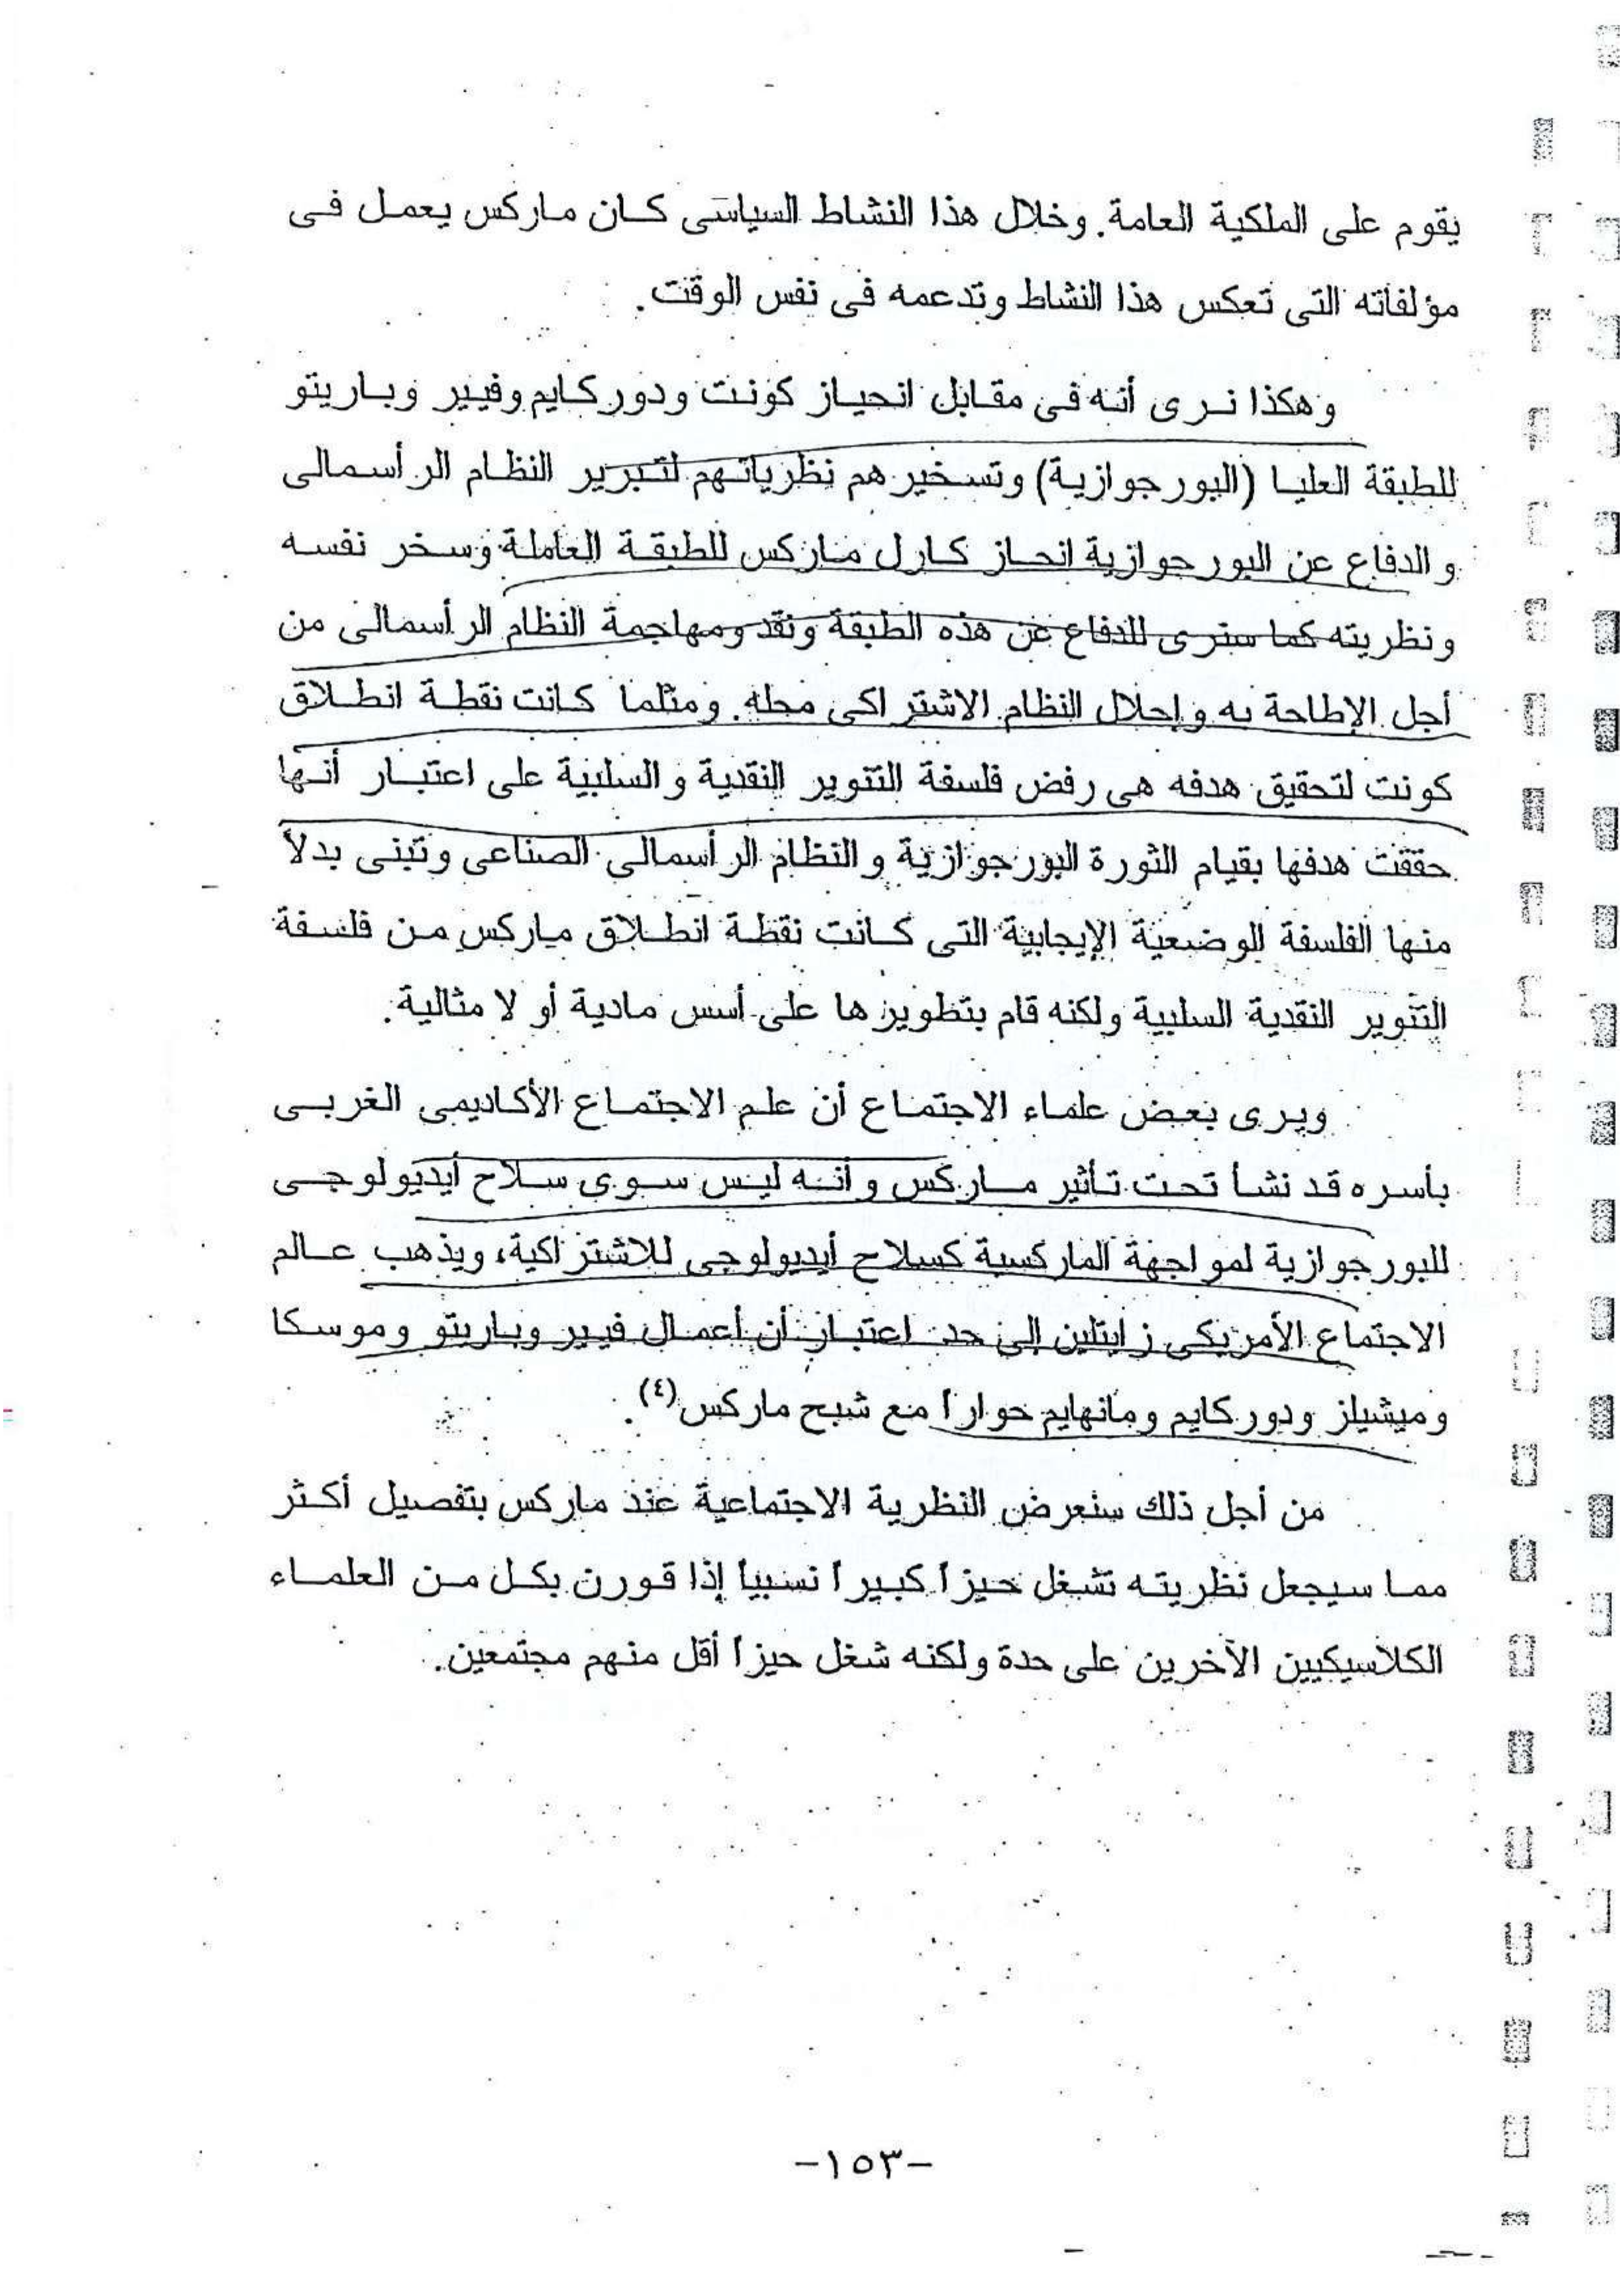 يقوم على الملكية العامة. وخلال هذا النشاط السياسى كان ماركس يعمل فى
مؤلفاته التى تعكس هذا النشاط وتدعمه فى نفس الوقت.
وهكذا نرى أنه فى مقابل انحياز كونت ودوركايم وفيبر وباريتو
للطبقة العليا (البورجوازية) وتسخيرهم نظرياتهم لتبرير النظام الرأسمالى
والدفاع عن البورجوازية انحاز كارل ماركس للطبقة العاملة وسخر نفسه
ونظريته كما سنرى للدفاع عن هذه الطبقة ونقد ومهاجمة النظام الرأسمالى من
أجل الإطاحة به وإحلال النظام الاشتراكى محله. ومثلما كانت نقطة انطلاق
كونت لتحقيق هدفه هى رفض فلسفة التنوير النقدية والسلبية على اعتبار أنها
حققت هدفها بقيام الثورة البورجوازية والنظام الرأسمالى الصناعى وتبنى بدلاً
منها الفلسفة الوضعية الإيجابية التى كانت نقطة انطلاق ماركس من فلسفة
التنوير النقدية السلبية ولكنه قام بتطويرها على أسس مادية أو لا مثالية.
ويرى بعض علماء الاجتماع أن علم الاجتماع الأكاديمى الغربى
بأسره قد نشأ تحت تأثير ماركس وأنه ليس سوى سلاح أيديولوجى
للبورجوازية لمواجهة الماركسية كسلاح أيديولوجى للاشتراكية، ويذهب عالم
الاجتماع الأمريكى زايتلين إلى حد اعتبار أن أعمال فيبر وباريتو وموسكا
وميشيلز ودوركايم ومانهايم حواراً مع شبح ماركس(٤).
من أجل ذلك سنعرض النظرية الاجتماعية عند ماركس بتفصيل أكثر
مما سيجعل نظريته تشغل حيزاً كبيراً نسبياً إذا قورن بكل من العلماء
الكلاسيكيين الآخرين على حدة ولكنه شغل حيزاً أقل منهم مجتمعين.
-١٥٣-